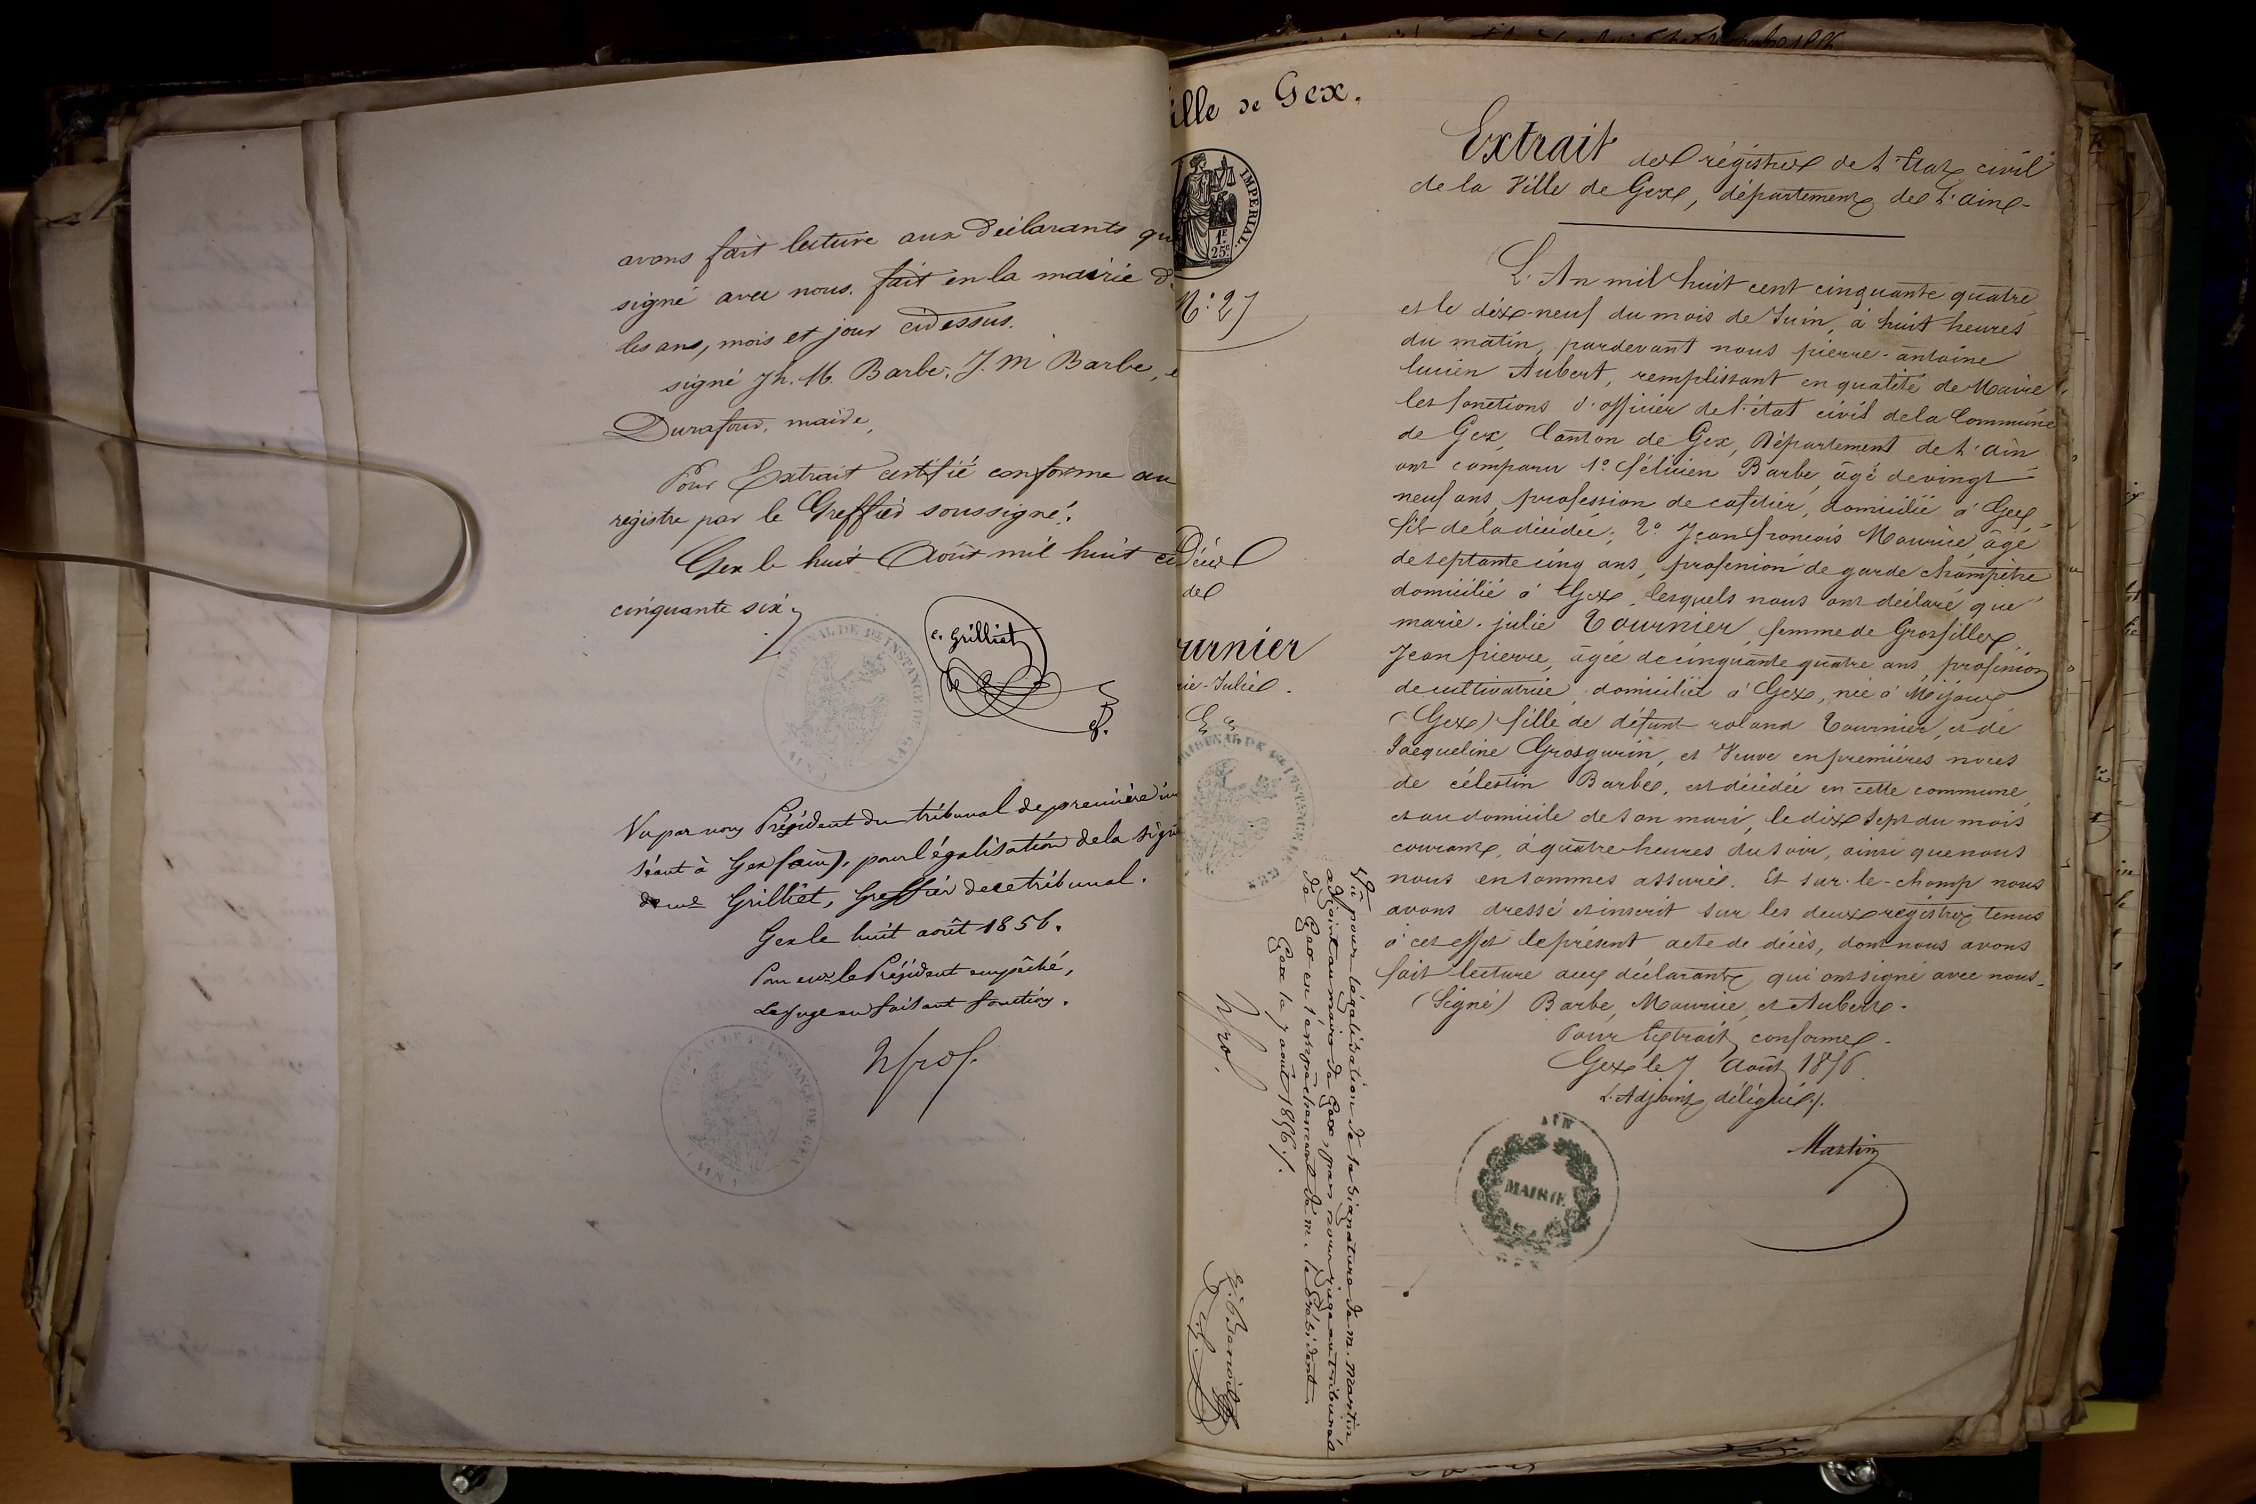 avons fait lecture aux déclarants qui
signé avec nous. fait en la mairie d
les ans, mois et jour cidessus.
signé Jh. M. Barbe, J. M Barbe, e
Durafour, maire,
Pour Extrait certifié conforme au
registre par le Greffier soussigné.
Gex le huit Août mil huit ce
cinquante six
TRIBUNAL DE 1RE INSTANCE DE GEX
(AIN)
C. Grilliet
Vu par nous Président du tribunal de première in
séant à Gex (ain), pour légalisation de la sign
de me Grilliet, Greffier de ce tribunal.
Gex le huit août 1856.
Pour mr le Président empêché,
Le juge en faisant fonctions.
TRIBUNAL DE 1RE INSTANCE DE GEX
(AIN)
ille de Gex.
IMPERIAL.
1F
25c
N.° 27
Décès
de
urnier
rie-Julie.
TRIBUNAL DE 1RE INSTANCE DE GEX
Vu pour légalisation de la signature de m. Martin
adjoint au maire de Gex, par nous juge au tribunal
de Gex en l'empêchement de m. le Président.
Gex le 7 août 1856.
Extrait des régistres de L'État civil
de la Ville de Gex, département de L'ain-
L'An mil huit cent cinquante quatre
et le dix-neuf du mois de Juin, à huit heures
du matin, pardevant nous pierre-antoine
lucien Aubert, remplissant en qualité de Maire
les fonctions d'officier de l'état civil de la Commune
de Gex, Canton de Gex, Département de L'ain
ont comparu 1° félicien Barbe, âgé de vingt-
neuf ans, profession de cafetier, domicilié à Gex,
fils de la décédée; 2° Jean françois Maurice âgé
de septante cinq ans, profession de garde champêtre
domicilié à Gex, lesquels nous ont déclaré que
marie-julie Tournier, femme de Grosfillex
Jean pierre, âgée de cinquante quatre ans, profession
de cultivatrice, domiciliée à Gex, née à Mijoux
(Gex) fille de défunt roland Tournier, et de
Jacqueline Grosgurin, et Veuve en premières noces
de célestin Barbe, est décédée en cette commune
et au domicile de son mari, le dix sept du mois
courant, à quatre heures du soir, ainsi que nous
nous en sommes assurés. Et sur-le-champ nous
avons dressé et inscrit sur les deux registres tenus
à cet effet le présent acte de décès, dont nous avons
fait lecture aux déclarants qui ont signé avec nous.
(Signé) Barbe, Maurice, et Aubert.
Pour Extrait conforme.
Gex le 7 Août 1856
L'Adjoint délégué.
Martin
AIN
MAIRIE
GEX